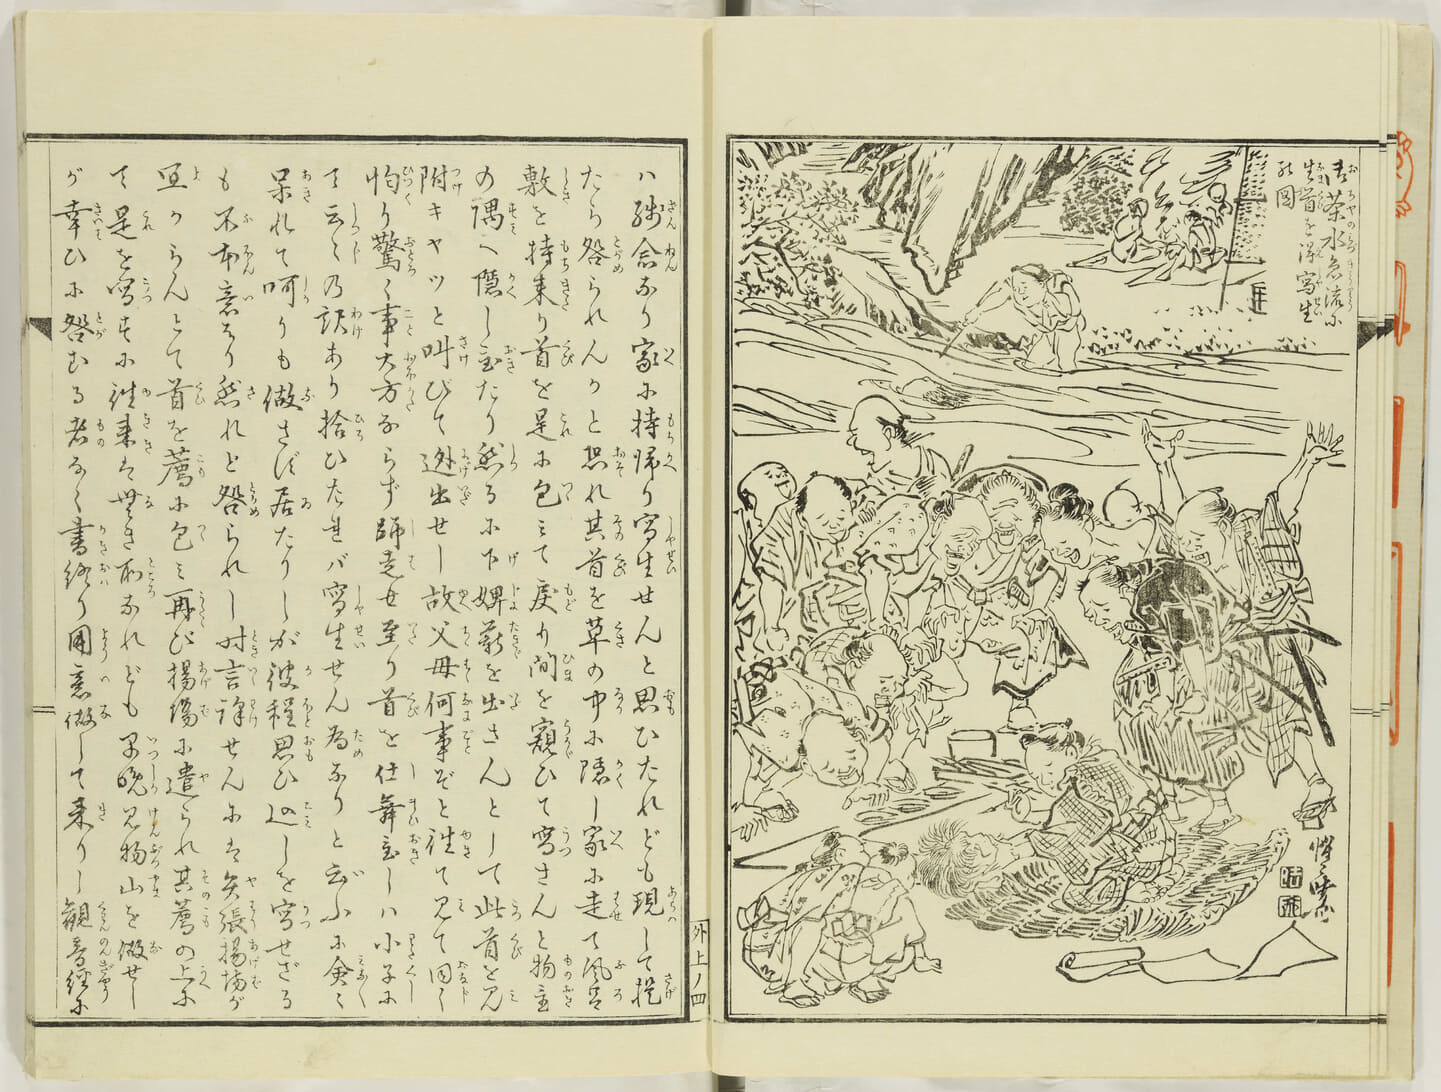 御茶水急流に
生首を得写生
の図
惺々暁斎
ハ残念なり家に持帰り写生せんと思ひたれども現して提
たら咎られんかと恐れ其首を草の中に隠し家に走て風呂
敷を持来り首を是に包ミて戻り間を窺ひて写さんと物置
の隅へ隠し置たり然るに下婢薪を出さんとして此首を見
附キャッと叫びて迯出せし故父母何事ぞと往て見て同く
怕り驚く事大方ならず師走せ至り首を仕舞置しハ小子に
て云々の訳あり拾ひたれバ写生せん為なりと云ふに僉々
呆れて呵りも做さず居たりしが彼程思ひ込しを写せざる
も不本意なり然れど咎られし时言訳せんには矢張揚場が
宜からんとて首を薦に包ミ再び揚場に遣られ其薦の上に
て是を写すに往来は無き所なれども早晩見物山を做せし
が幸ひに咎むる者なく書終り用意做して来りし観音経に
外上ノ四